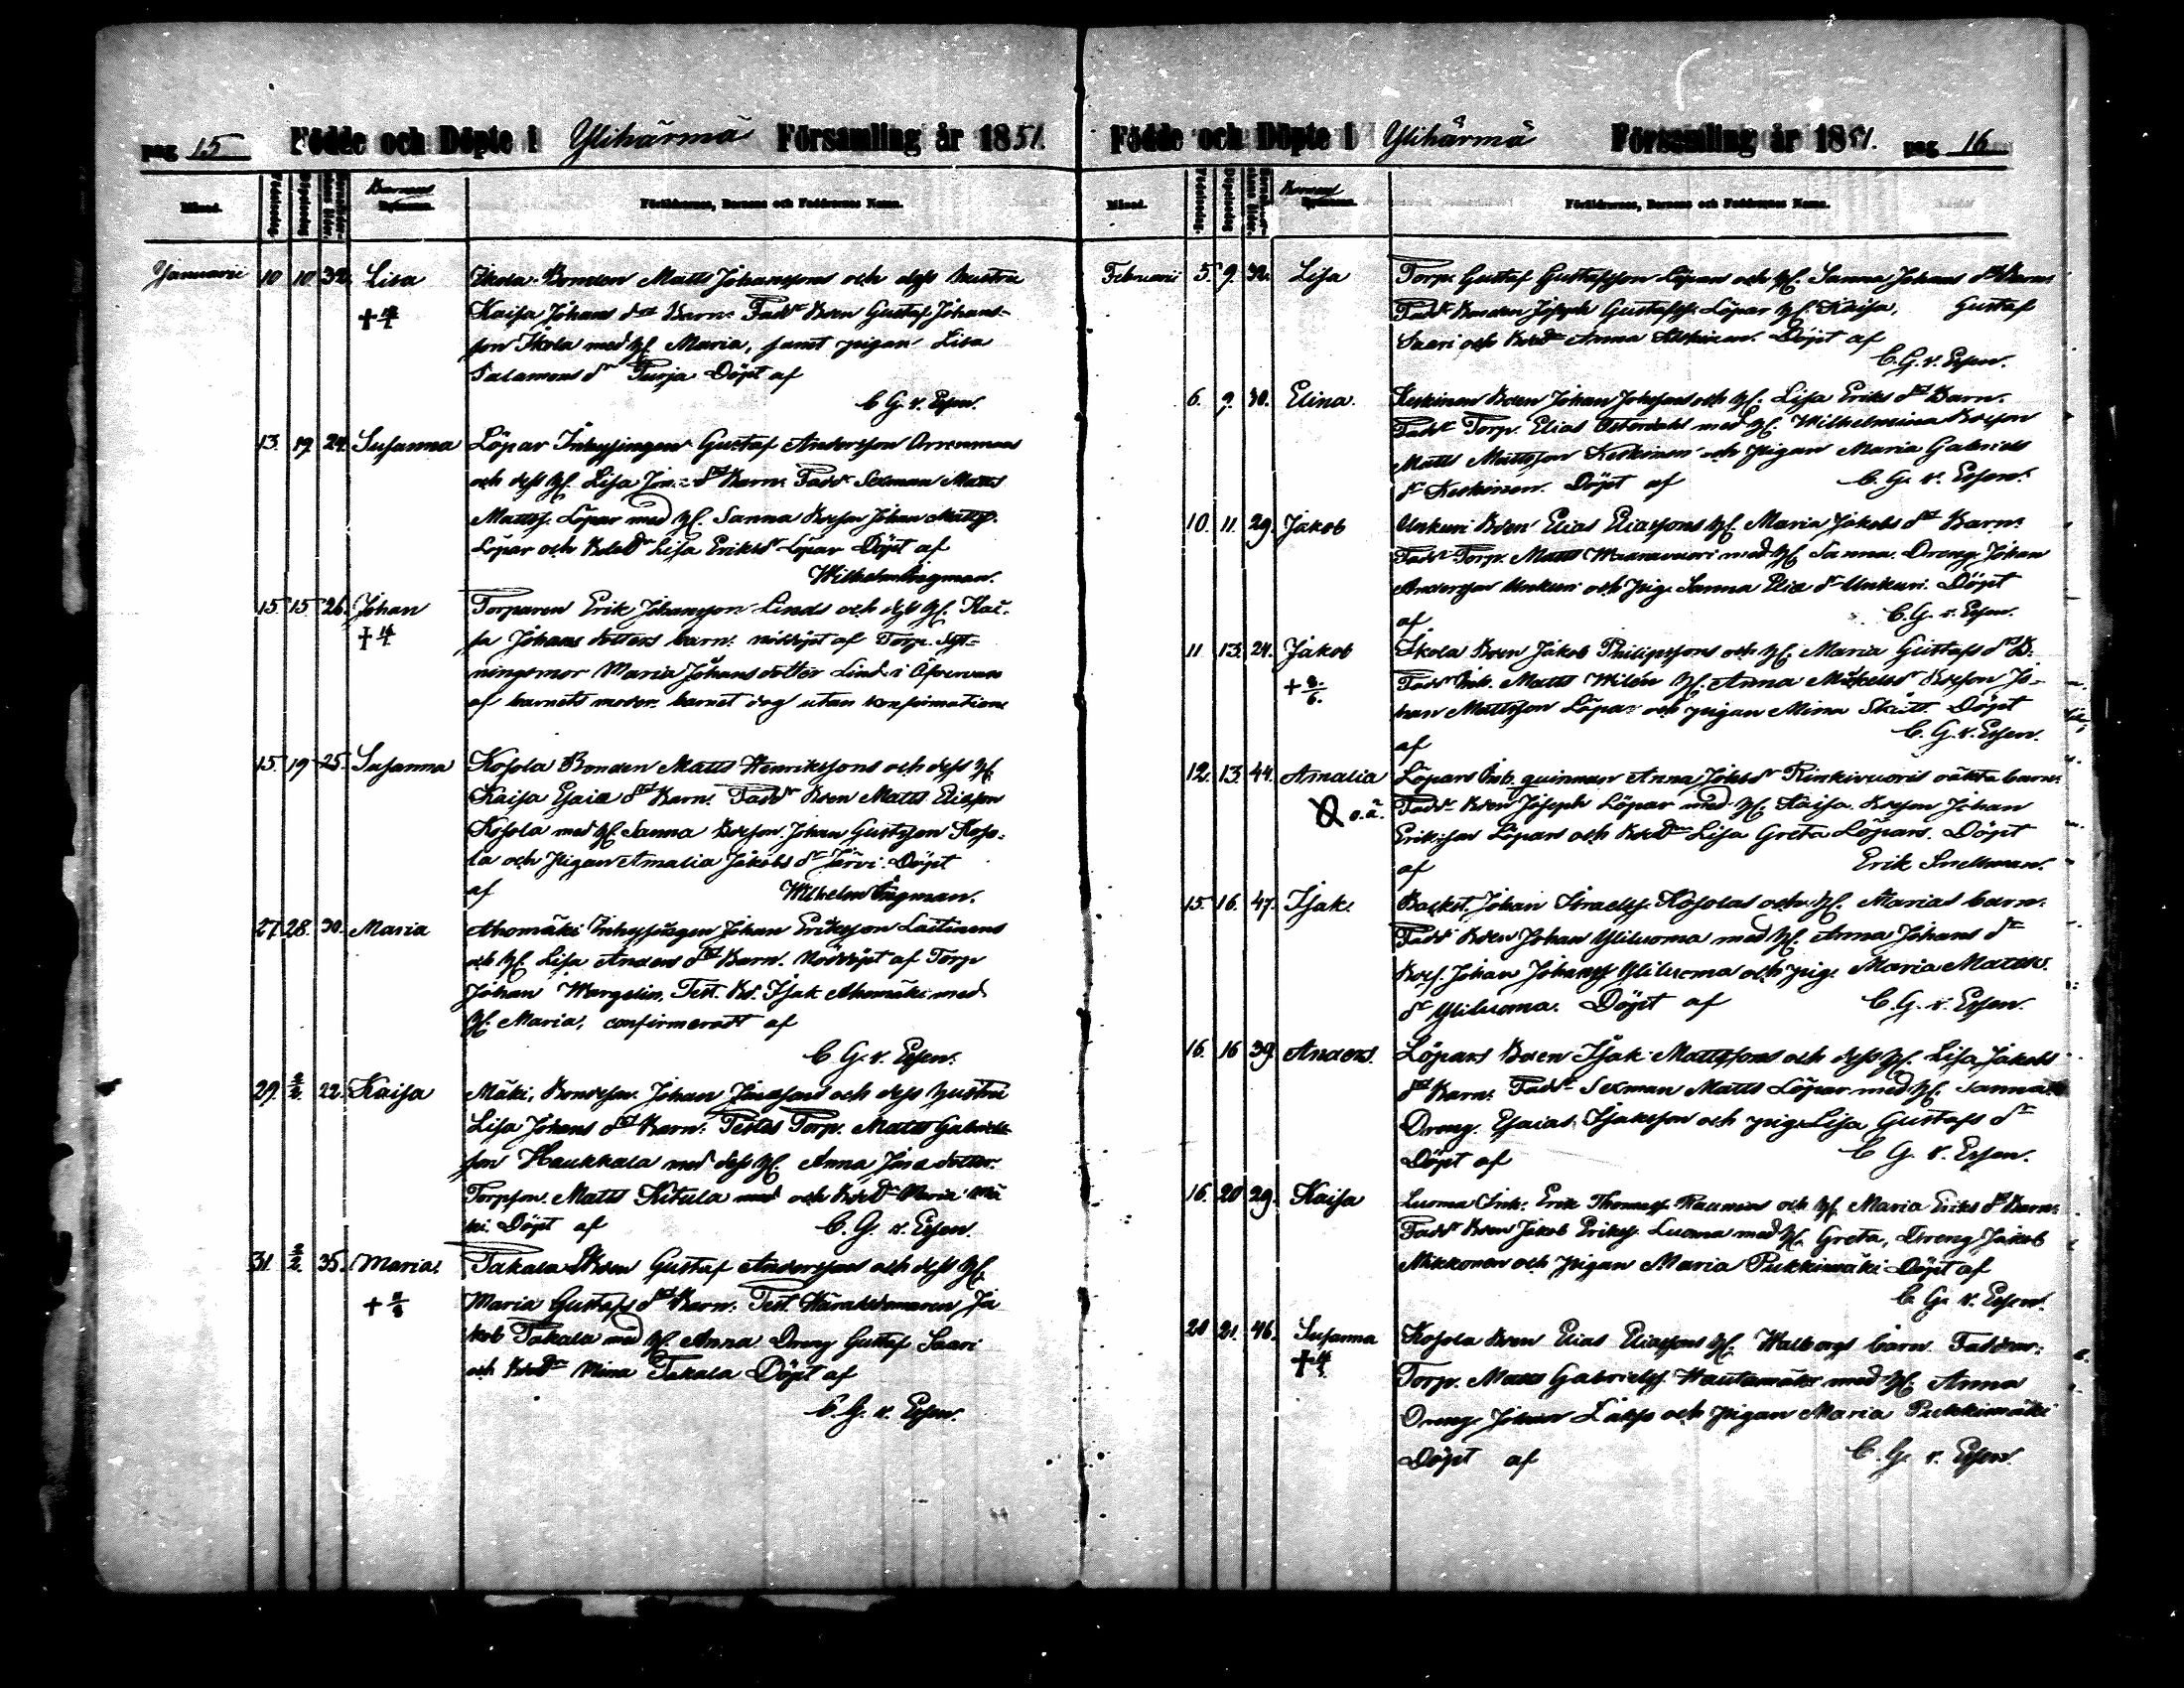 pag 15 Födde och Döpte i Ylihärmä Församling år 1851.
Månad. Födelsedag. Döpelsedag Barnens Föräldrarnes, Barnens och Faddrarnes Namn.
Januarii 10 10 32. Lisa Ikola Bonden Matts Johanssons och dess hustru
Kaisa Johans dr Barn. Faddr Bden Gustaf Johans-
son Ikola med H. Maria, samt pigan Lisa
Salamons dr Turja Döpt af
C. G. v. Essen.
13. 19. 24. Susanna Löpar Inhysingen Gustaf Andersson Orrenmaas
och dess H. Lisa drs Barn. Faddr Sexman Matts
Mattss. Löpar med H. Sanna Bdeson Johan Mattss.
Löpar och Bdedr Lisa Eriksdr Löpar Döpt af
Wilhelm Ingman.
15. 15 26. Johan Torparen Erik Johansson Linds och dess H. Kai-
sa Johans dotters barn. nöddöpt af Torp. Syt-
ningsmor Maria Johans dotter Lind i öfvervaro
af barnets moder. barnet dog utan konfirmation
15. 19 25. Susanna Kosola Bonden Matts Henrikssons och dess H.
Kaisa Esaiæ drs Barn. Faddr Bden Matts Eliasson
Kosola med H. Sanna Bdeson. Johan Gustafsson Koso-
la och Pigan Amalia Jakobs dr Järvi. Döpt
af Wilhelm Ingman.
27. 28. 30. Maria Ahomäki Inhysingen Johan Eriksson Laitinens
och H. Lisa Anders drs Barn. Nöddöpt af Torp
Johan Wargelin, Test. Bd. Isak Ahomäki med
H. Maria, confirmeradt af
C. G. v. Essen.
29. 2/2. 22. Kaisa Mäki, Bondeson. Johan och dess hustru
Lisa Johans drs Barn. Testes Torp. Matts Gabriels-
son Haukkala med dess H. Anna dotter.
Torpson. Matts Kitula med och Bdedr Maria Mä
ki. Döpt af C. G. v. Essen.
31. 2/2. 35. Maria. Takala Bden Gustaf Anderssons och dess H.
Maria Gustafs drs Barn. Test. Häradsdomaren Ja
kob Takala med H. Anna Dreng Gustaf Saari
och Bdedr Mina Takala Döpt af
C. G. v. Essen.
Födde och Döpte i Ylihärmä Församling år 1851. pag 16
Månad. Födelsedag. Döpelsedag Barnens Föräldrarnes, Barnens och Faddrarnes Namn.
Februarii 5. 9. 32. Lisa Torp. Gustaf Gustafsson Löpars och H. Sanna Johans drs Barn.
Faddr Bonden Joseph Gustafss. Löpar H. Kaisa, Gustaf
Saari och Bdedr Anna Keskinen. Döpt af
C. G. v. Essen.
6. 9. 30. Elina. Keskinen Bden Johan Johssons och H. Lisa Eriks drs Barn.
Faddr Torp. Elias Österdahl med H. Wilhelmina Bdeson
Matts Mattsson Keskinen och Pigan Maria Gabriels
dr Keskinen. Döpt af C. G. v. Essen.
10. 11. 29. Jakob Unkuri Bden Elias Eliassons H. Maria Jakobs drs Barn.
Faddr Torp. Matts med H. Sanna. Dreng Johan
Andersson Unkuri och Pig. Sanna Eliæ dr Unkuri. Döpt
af C. G. v. Essen.
11 13. 24. Jakob Ikola Bden Jakob Philipssons och H. Maria Gustafs drs B.
Faddr Inh. Matts Wilén H. Anna Bdeson Jo-
han Mattsson Löpar och pigan Mina Skütt. Döpt
af C. G. v. Essen.
12. 13. 44. Amalia Löpars Inh. quinnan Anna Johsdr Rinkivuoris oäkta barn.
o. ä. Faddr Bden Joseph Löpar med H. Kaisa. Bdeson Johan
Eriksson Löpars och Bdedr Lisa Greta Löpars. Döpt
af Erik Snellman.
15. 16. 47. Isak. Backst. Johan Israelss. Kosolas och H. Marias barn.
Faddr Bden Johan Yliluoma med H. Anna Johans dr
Bdes. Johan Johanss Yliluoma och pig. Maria Matts.
dr Yliluoma. Döpt af C. G. v. Essen.
16. 16 39. Anders. Löpars Bden Isak Mattssons och dess H. Lisa Jakobs
drs Barn. Faddr Sexman Matts Löpar med H. Sanna
Dreng. Esaias Isaksson och pig Lisa Gustafs dr
Döpt af C. G. v. Essen.
16. 20 29. Kaisa Luoma Inh. Erik Thomass. och H. Maria Eriks drs Barn.
Faddr Bden Jakob Erikss. Luoma med H. Greta, Dreng Jakob
Mikkonen och Pigan Maria Pukkimäki Döpt af
C. G. v. Essen.
20 21. 46. Susanna Kosola Bden Elias Eliassons H. Walborgs barn. Faddrar.
Torp. Matts Gabrielss. Hautamäki med H. Anna
Dreng. Johan Laksö och Pigan Maria Pukkimäki
Döpt af C. G. v. Essen.